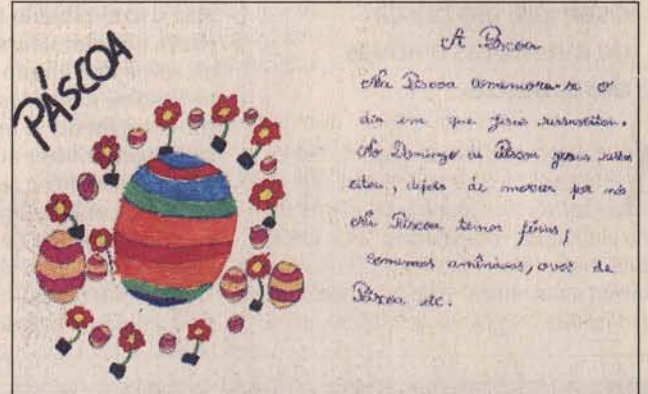 PÁSCOA
A Páscoa
Na Páscoa comemora-se o
dia em que Jesus ressuscitou.
No Domingo de Páscoa Jesus ressus
citou, depois de morrer por nós
Na Páscoa temos férias,
comemos amêndoas, ovos de
Páscoa etc.